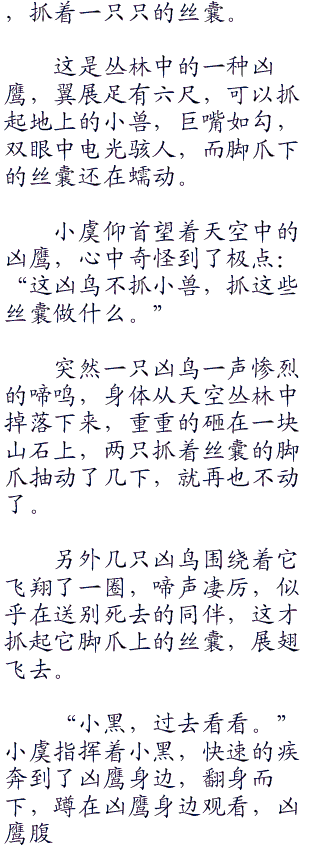 ，抓着一只只的丝囊。
这是丛林中的一种凶
鹰，翼展足有六尺，可以抓
起地上的小兽，巨嘴如勾，
双眼中电光骇人，而脚爪下
的丝囊还在蠕动。
小虞仰首望着天空中的
凶鹰，心中奇怪到了极点：
“这凶鸟不抓小兽，抓这些
丝囊做什么。”
突然一只凶鸟一声惨烈
的啼鸣，身体从天空丛林中
掉落下来，重重的砸在一块
山石上，两只抓着丝囊的脚
爪抽动了几下，就再也不动
了。
另外几只凶鸟围绕着它
飞翔了一圈，啼声凄厉，似
乎在送别死去的同伴，这才
抓起它脚爪上的丝囊，展翅
飞去。
“小黑，过去看看。”
小虞指挥着小黑，快速的疾
奔到了凶鹰身边，翻身而
下，蹲在凶鹰身边观看，凶
鹰腹